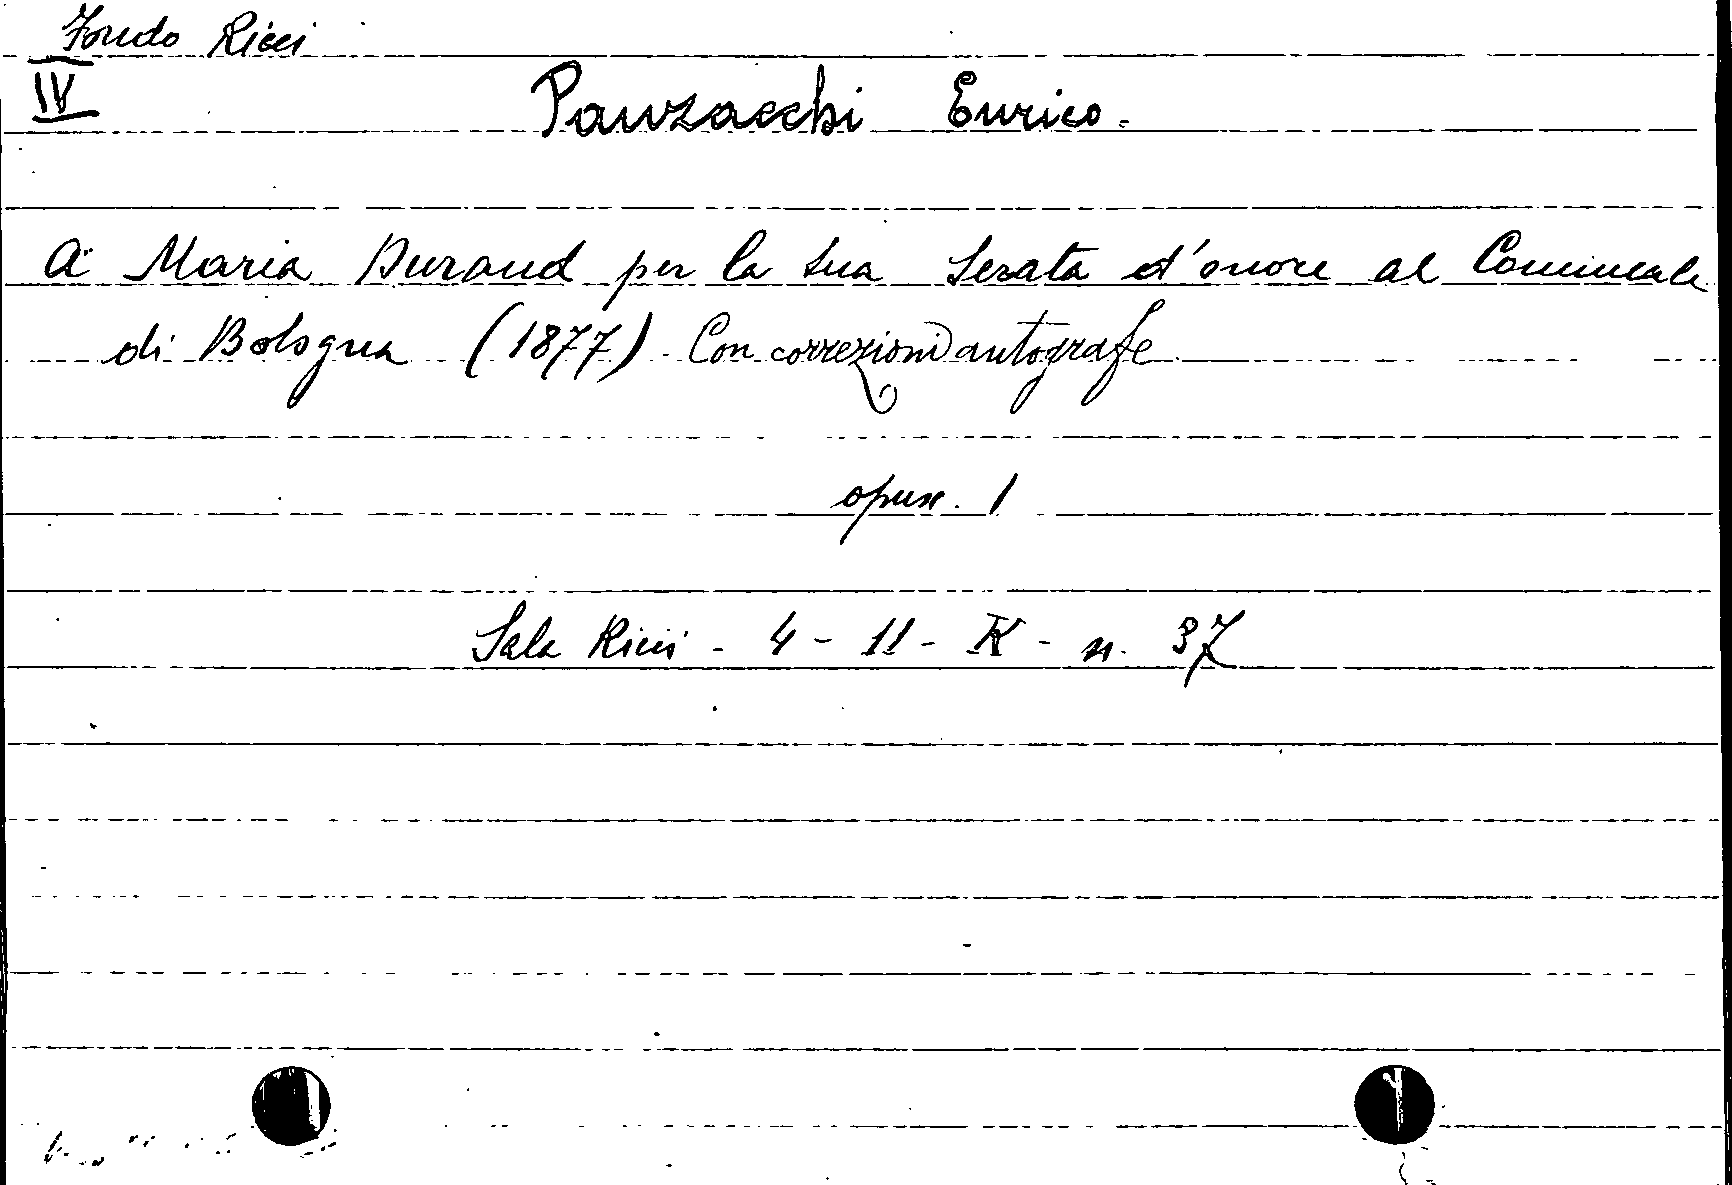 Fondo Ricci
IV
Panzacchi Enrico.
A Maria Durand per la sua Serata d'onore al Comunale
di Bologna (1877). Con correzioni autografe
opusc. 1
Sala Ricci - 4 - 11 - K - n. 37